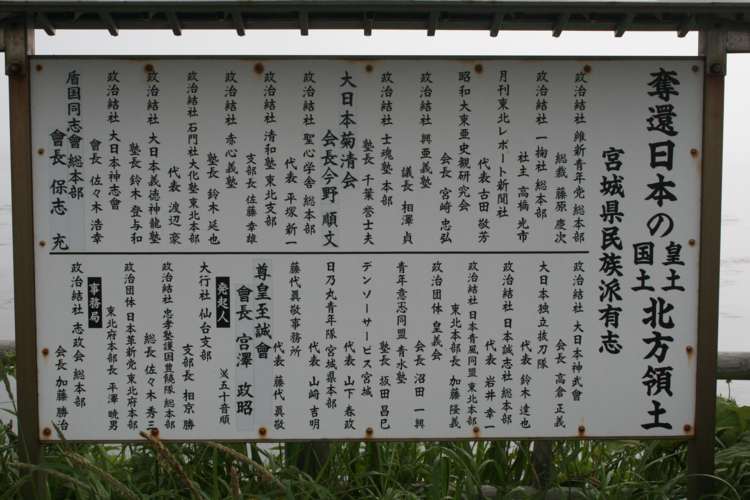 奪還日本の皇土国土北方領土
宮城県民族派有志
政治結社 維新青年党 総本部
総裁 藤原 慶次
政治結社 一掬社 総本部
社主 高橋 光市
月刊東北レポート新聞社
代表 古田 敬芳
昭和大東亜史観研究会
会長 宮崎 忠弘
政治結社 興亜義塾
議長 相澤 貞
政治結社 士魂塾 本部
塾長 千葉 誉士夫
大日本菊清会
会長 今野 順丈
政治結社 聖心学舎 総本部
代表 平塚 新一
政治結社 清和塾 東北支部
支部長 佐藤 幸雄
政治結社 赤心義塾
塾長 鈴木 延也
政治結社 石門社大化塾 東北本部
代表 渡辺 豪
政治結社 大日本義徳神龍塾
塾長 鈴木 登与和
政治結社 大日本神志會
會長 佐々木 浩幸
盾国同志會 総本部
會長 保志 充
政治結社 大日本神武會
会長 高倉 正義
大日本独立抜刀隊
代表 鈴木 達也
政治結社 日本誠志社 総本部
代表 岩井 幸一
政治結社 日本青風同盟 東北本部
東北本部長 加藤 隆義
政治団体 皇義会
会長 沼田 一興
青年意志同盟 青水塾
塾長 坂田 昌巳
デンソーサービス宮城
代表 山下 春政
日乃丸青年隊 宮城県本部
代表 山崎 吉明
藤代眞敬事務所
代表 藤代 眞敬
尊皇至誠會
會長 宮澤 政昭
発起人
※五十音順
大行社 仙台支部
支部長 相京 勝
政治結社 忠孝塾護国豊饒隊 総本部
総長 佐々木 秀三
政治団体 日本革新党 東北府本部
東北府本部長 平澤 暁男
事務局
政治結社 志政会 総本部
会長 加藤 勝治